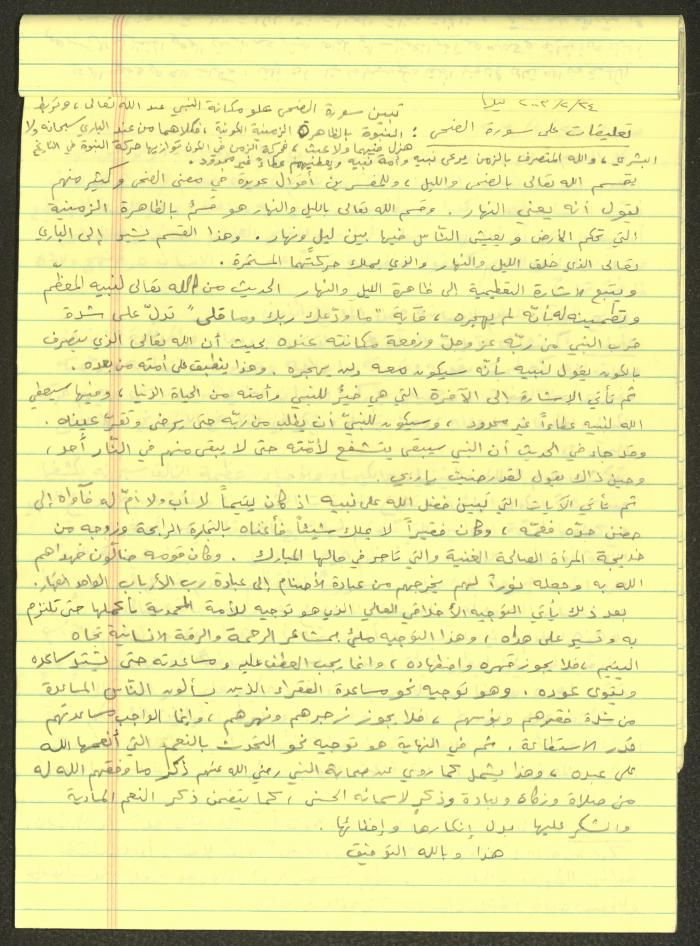 ٢٠٠٣/٢/٢٤ ليلا
تبين سورة الضحى علو مكانة النبي عند الله تعالى، وتربط
تعليقات على سورة الضحى: النبوة بالظاهرة الزمنية الكونية، فكلاهما من عند الباري سبحانه ولا
هزل فيهما ولا عبث، فحركة الزمن في الكون توازيها حركة النبوة في التاريخ
البشري، والله المتصرف بالزمن يرعى نبيه وأمة نبيه ويعطيهم عطاءً غير مجذوذ.
يقسم الله تعالى بالضحى والليل، وللمفسرين أقوال عديدة في معنى الضحى وكثير منهم
يقول أنه يعني النهار. وقسم الله تعالى بالليل والنهار هو قسمٌ بالظاهرة الزمنية
التي تحكم الأرض ويعيش الناس فيها بين ليل ونهار. وهذا القسم يشير إلى الباري
تعالى الذي خلق الليل والنهار والذي يملك حركتهما المستمرة.
ويتبع الإشارة التعظيمية إلى ظاهرة الليل والنهار الحديث من الله تعالى لنبيه المعظم
وتطمينه له بأنّه لم يهجره، فآية "ما ودّعك ربك وما قلى" تدلّ على شدة
قرب النبي من ربّه عز وجلّ ورفعة مكانته عنده بحيث أن الله تعالى الذي يتصرف
بالكون يقول لنبيه بأنّه سيكون معه ولن يهجره. وهذا ينطبق على أمته من بعده.
ثم تأتي الإشارة إلى الآخرة التي هي خيرٌ للنبي وأمته من الحياة الدنيا، وفيها سيعطي
الله لنبيه عطاءاً غير محدود، وسيكون للنبيّ أن يطلب من ربّه حتى يرضى وتقرّ عيناه.
وقد جاء في الحديث أن النبي سيبقى يتشفع لأمّته حتى لا يبقى منهم في النّار أحد،
وحين ذاك يقول لقد رضيت يا ربي.
ثم تأتي الآيات التي تبين فضل الله على نبيه إذ كان يتيماً لا أب ولا أمّ له فآواه إلى
حضن جدّه فعمّه، وكان فقيراً لا يملك شيئاً فأغناه بالتجارة الرابحة وزوجه من
خديجة المرأة الصالحة الغنية والتي تاجر في مالها المبارك. وكان قومه ضالّون فهداهم
الله به وجعله نوراً لهم يخرجهم من عبادة الأصنام إلى عبادة رب الأرباب الواحد القهار.
بعد ذلك يأتي التوجيه الأخلاقي العالي الذي هو توجيه للأمة المحمدية بأكملها حتى تلتزم
به وتسير على هداه، وهذا التوجيه مليئ بمشاعر الرحمة والرقة الإنسانية تجاه
اليتيم، فلا يجوز قهره واضطهاده، وإنما يجب العطف عليه ومساعدته حتى يشتد ساعده
ويقوى عوده. وهو توجيه نحو مساعدة الفقراء الذين يسألون الناس المساعدة
من شدة فقرهم وبؤسهم، فلا يجوز زجرهم ونهرهم، وإنما الواجب مساعدتهم
قدر الاستطاعة. ثم في النهاية هو توجيه نحو التحدث بالنعم التي أنعمها الله
على عبده، وهذا يشمل كما روي عن صحابة النبي رضي الله عنهم ذكر ما وفقهم الله له
من صلاة وزكاة وعبادة وذكرٍ لأسمائه الحسنى، كما يتضمن ذكر النعم المادية
والشكر عليها بدل إنكارها وإخفائها.
هذا وبالله التوفيق